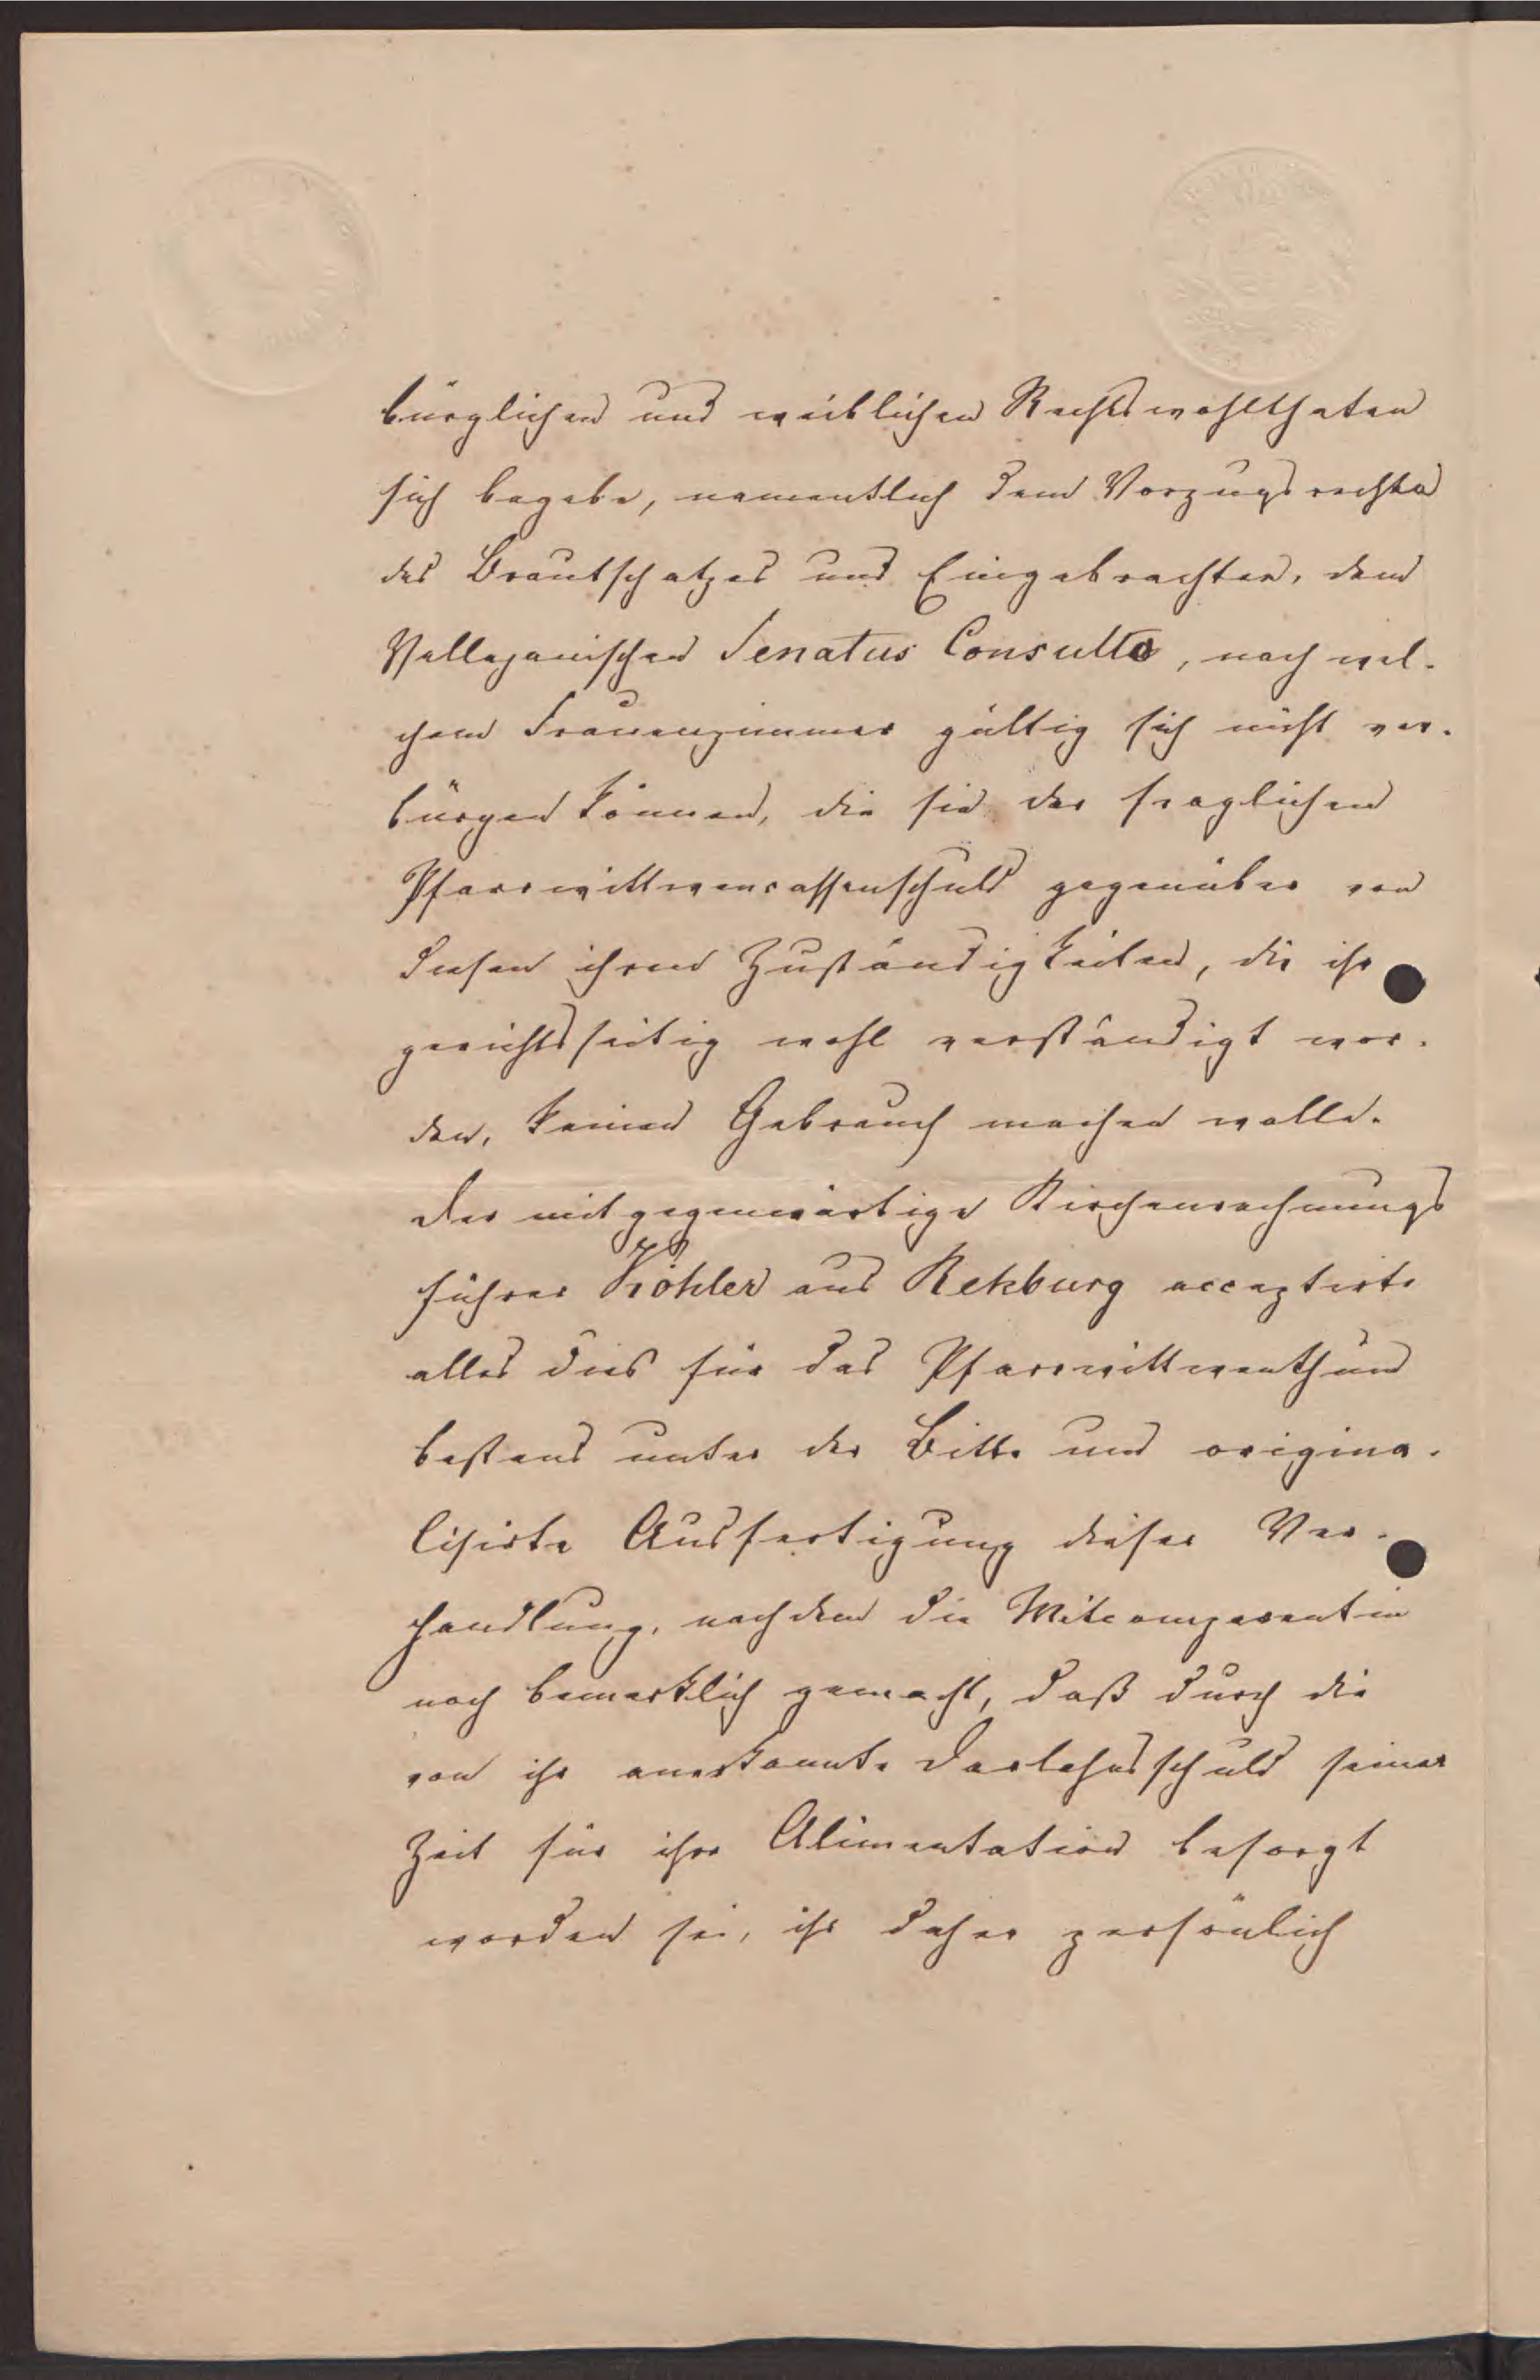 bürglichen und weiblichen Rechtswohlthaten
sich begebe, namentlich dem Vorzugsrechte
des Brautschatzes und Eingebrachten, dem
Vellejanischen Senatus Consulto, nach wel-
chem Frauenzimmer gültig sich nicht ver-
bürgen können, die sie der fraglichen
Pfarrwittwencassenschuld gegenüber von
diesen ihren Zuständigkeiten, die ihr
gerichtsseitig wohl verständigt wor-
den, keinen Gebrauch machen wolle.
Der mitgegenwärtige Kirchenrechnungs
führer Köhler aus Rekburg acceptirte
alles dies für das Pfarrwittwenthum
bestens unter der Bitte um origina-
lisirte Ausfertigung dieser Ver-
handlung, nachdem die Mitcomparentin
noch bemerklich gemacht, daß durch die
von ihr anerkannte Darlehnsschuld seiner
Zeit für ihre Alimentation besorgt
worden sei, ihr daher persönlich